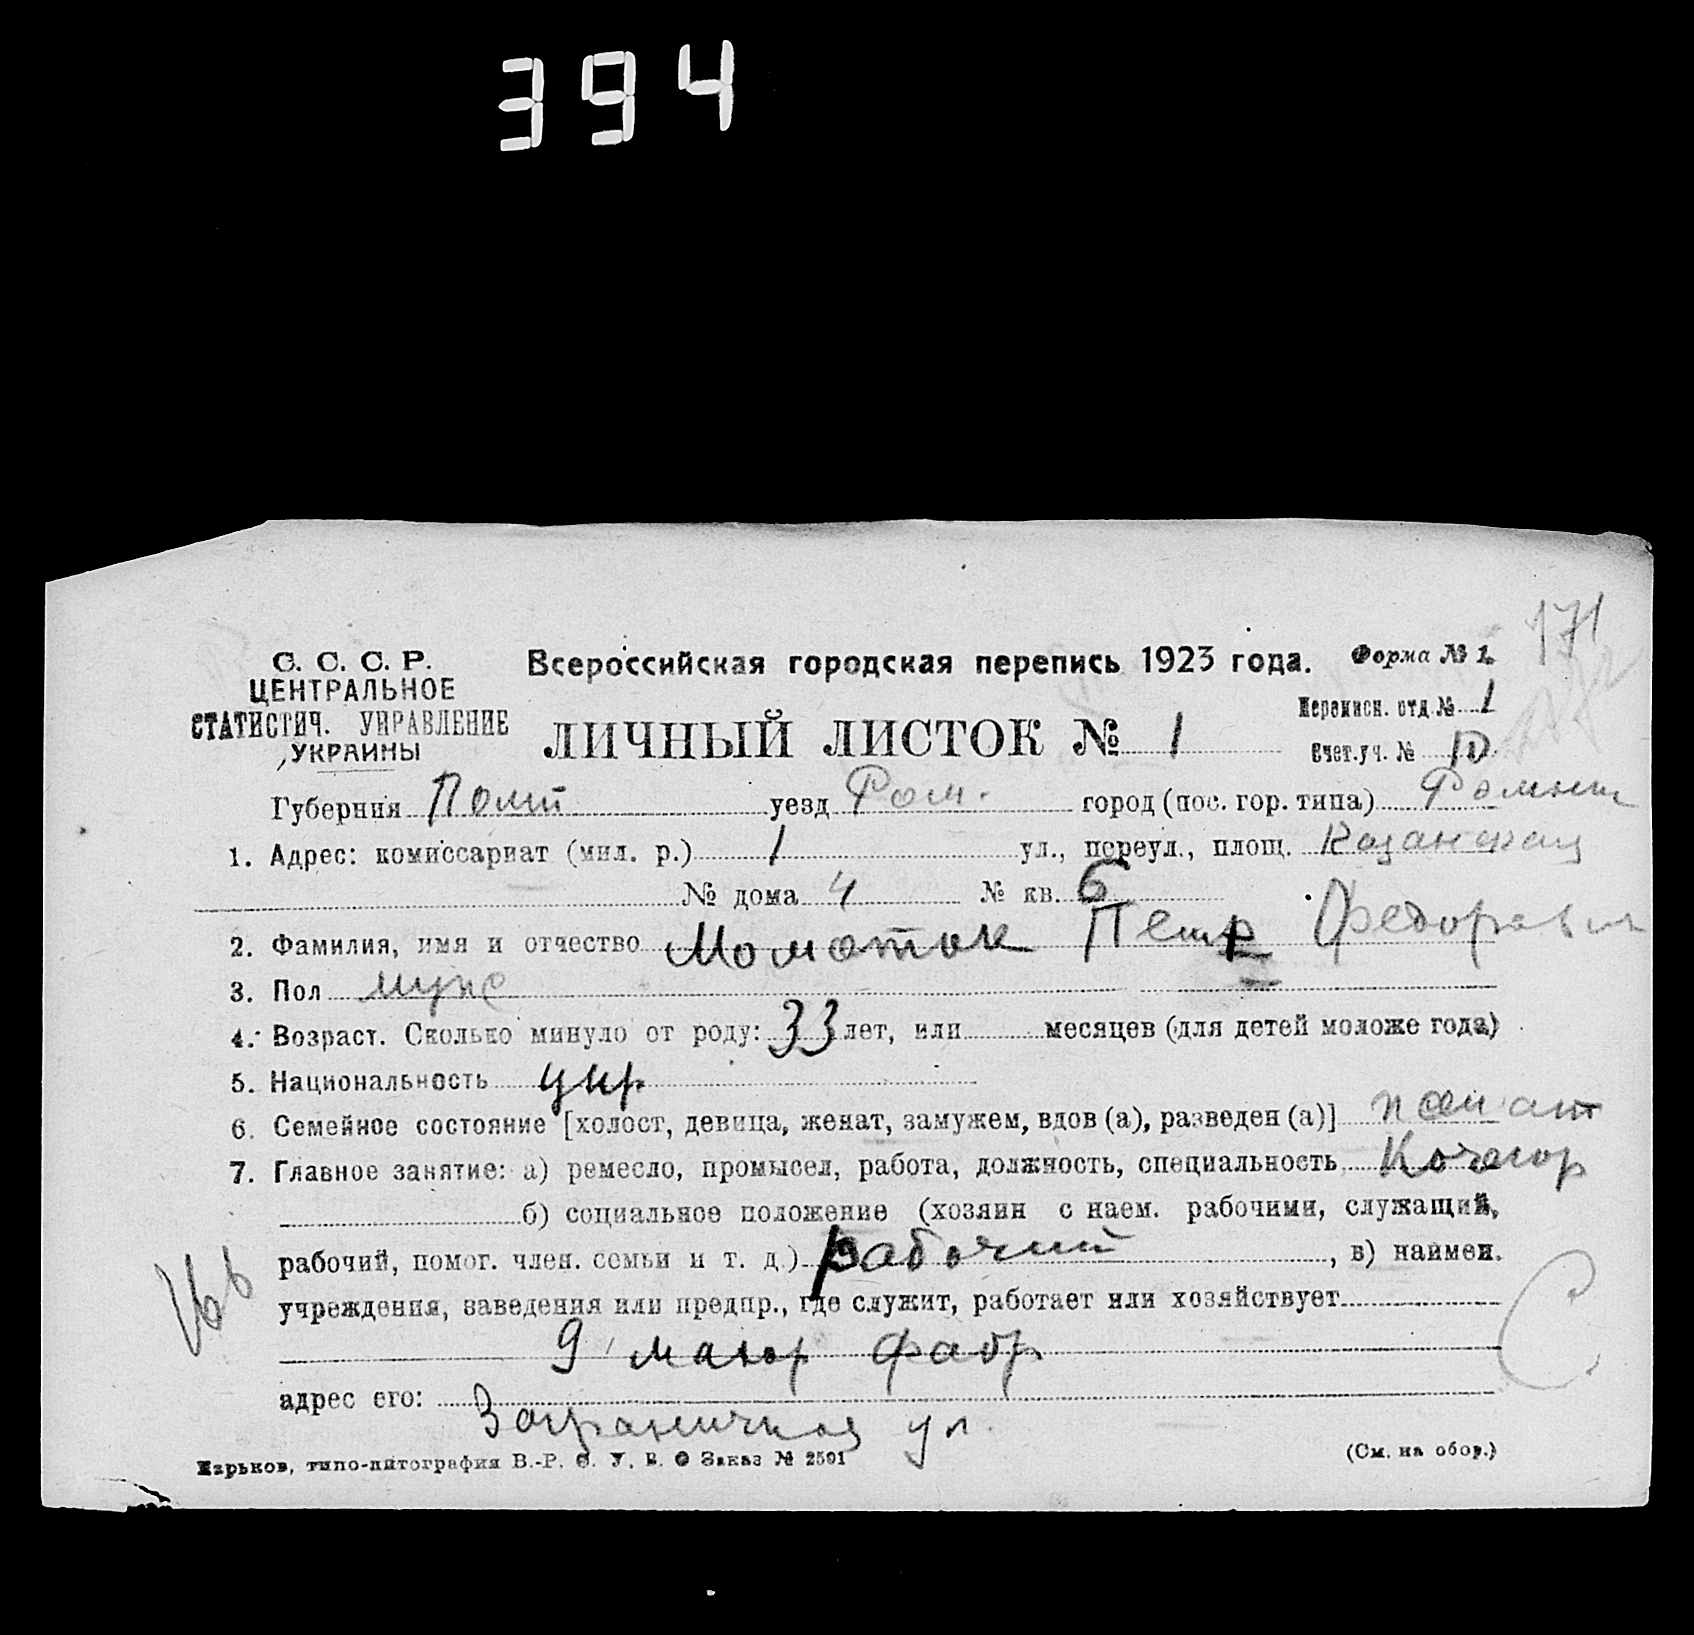 394
171
С. С. С. Р.
ЦЕНТРАЛЬНОЕ
СТАТИСТИЧ. УПРАВЛЕНИЕ
УКРАИНЫ
Всероссийская городская перепись 1923 года.
Форма № 1.
ЛИЧНЫЙ ЛИСТОК № 1
Переписн. отд. № 1
Счет. уч. № 10
Губерния Полт уезд Ром. город (пос. гор. типа) Ромны
1. Адрес: комиссариат (мил. р.) 1 ул., переул., площ. Казанская
№ дома 4 № кв. 6
2. Фамилия, имя и отчество Петр Федорович
3. Пол муж
4. Возраст. Сколько минуло от роду: 33 лет, или месяцев (для детей моложе года)
5. Национальность укр
6. Семейное состояние [холост, девица, женат, замужем, вдов (а), разведен (а)] женат
7. Главное занятие: а) ремесло, промысел, работа, должность, специальность Кочегар
б) социальное положение (хозяин с наем. рабочими, служащий,
рабочий, помог. член. семьи и т. д.) рабочий, в) наимен.
учреждения, заведения или предпр., где служит, работает или хозяйствует
9 махор фабр
адрес его: Заграничная ул.
Харьков, типо-литография В.-Р. Ф. У. В. О Заказ № 2591
(См. на обор.)